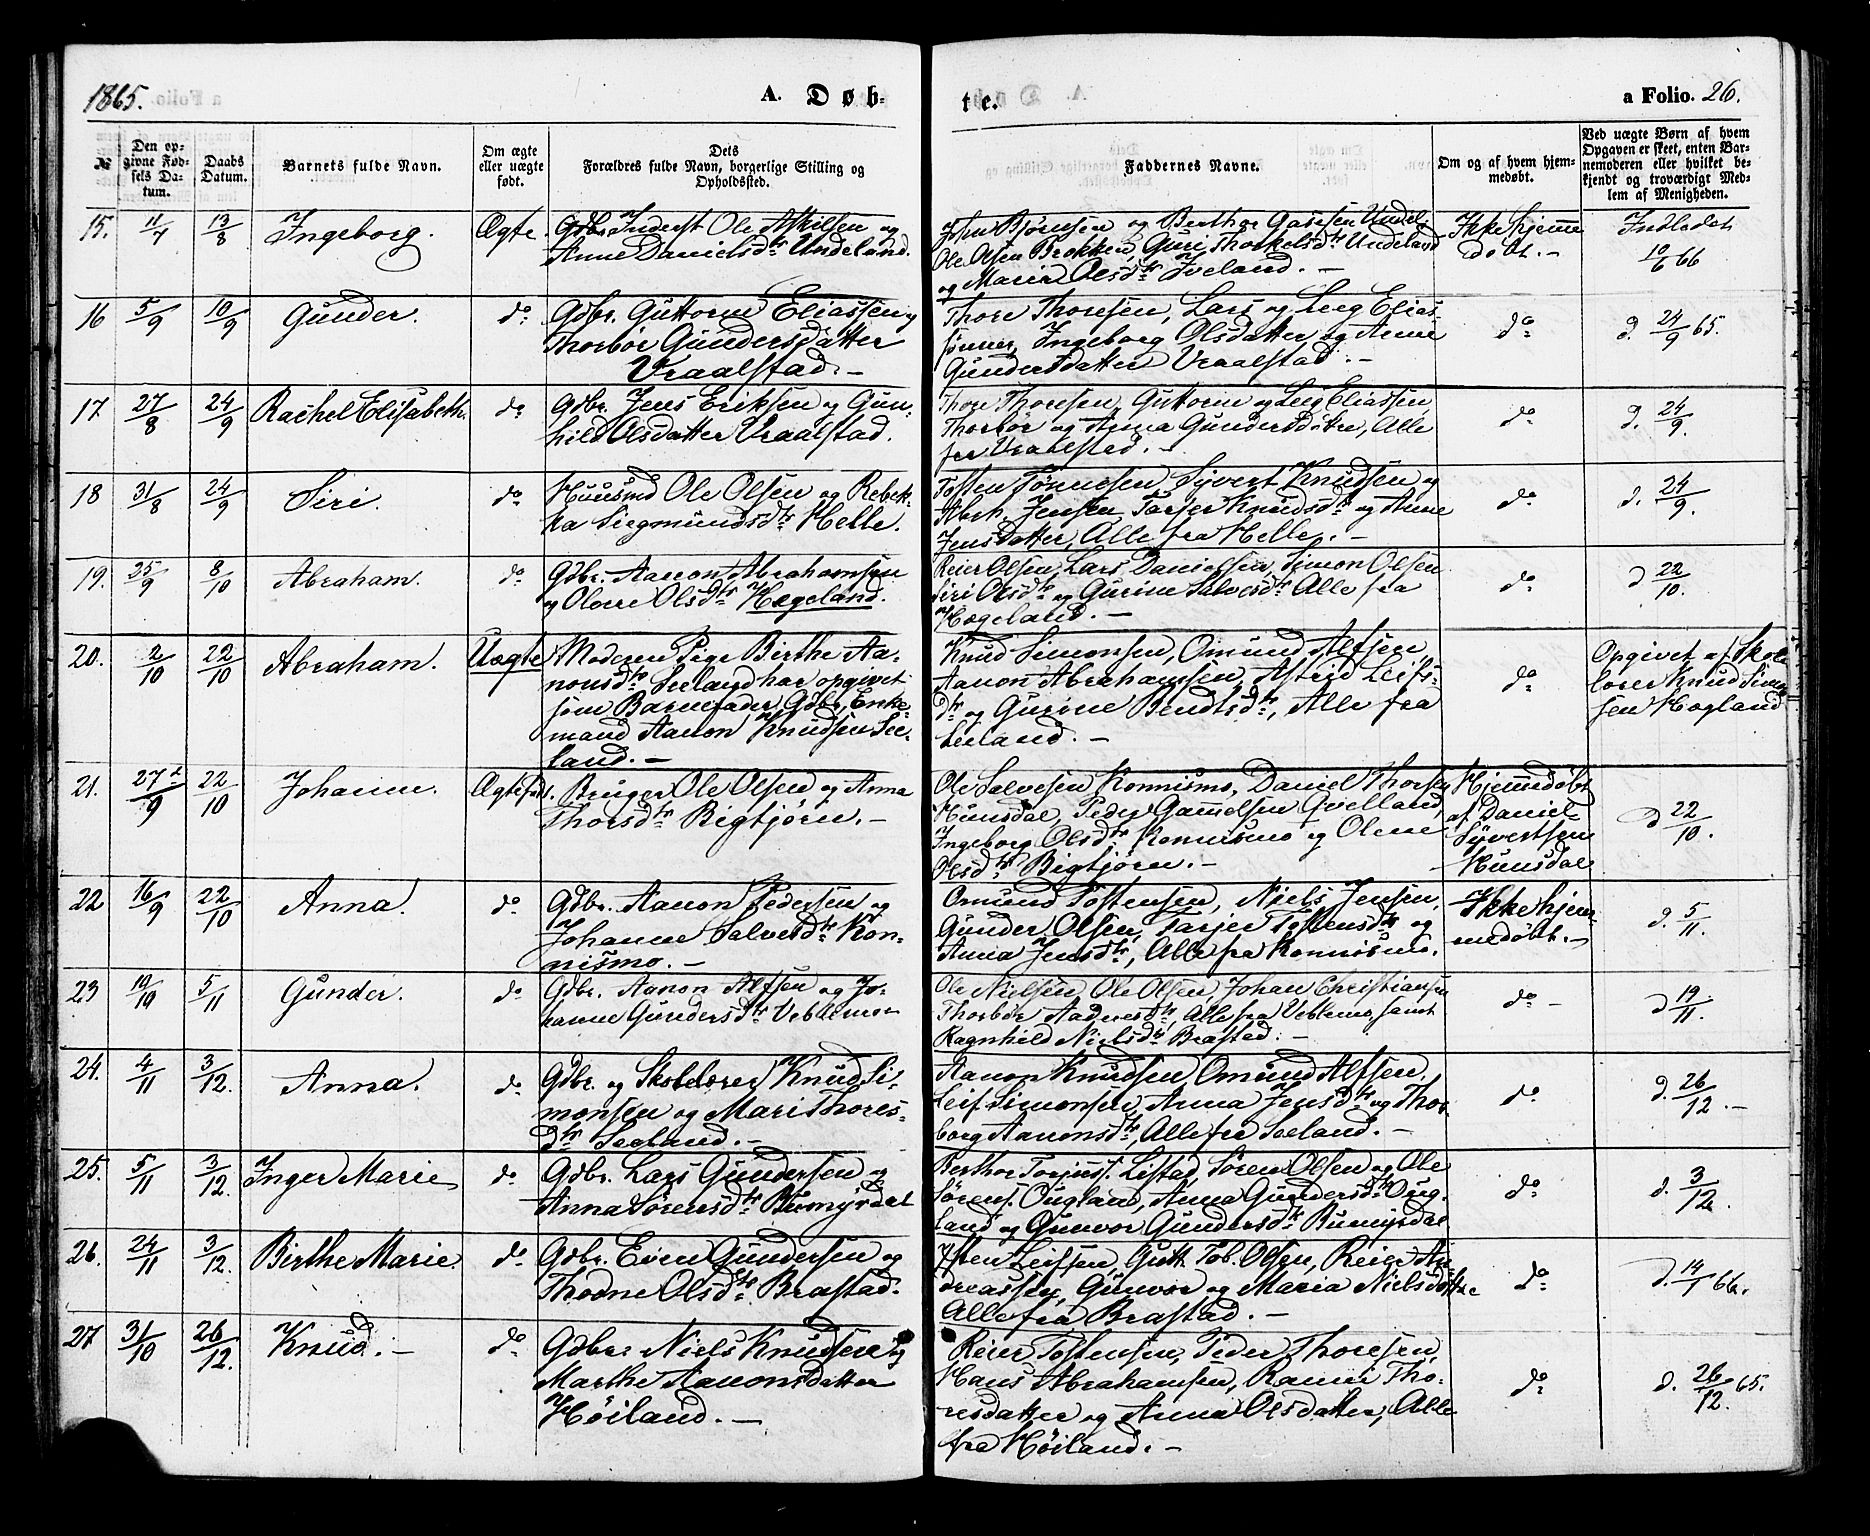 1865.
A. Døb-
te.
a Folio. 26.
№
Den op-
givne Fød-
sels Da-
tum.
Daabs
Datum.
Barnets fulde Navn.
Om ægte
eller uægte
født.
Dets
Forældres fulde Navn, borgerlige Stilling og
Opholdssted.
Faddernes Navne.
Om og af hvem hjem-
medøbt.
Ved uægte Børn af hvem
Opgaven er skeet, enten Bar-
nemoderen eller hvilket be-
kjendt og troværdigt Med-
lem af Menigheden.
15. 11/7 13/8 Ingeborg. Ægte.
Gdbr. Inderst Ole Askilsen og
Anne Danielsdtr Undeland.
John Bjørnsen og Berthe Undel.
Ole Olsen Brokken, Guri Thorkelsdtr Undeland
og Maria Olsdtr Iveland. –
Ikke hjemme
døbt. –
Indledet
10/6 66
16 5/9 10/9 Gunder. do
Gdbr. Guttorm Eliassen og
Thorbør Gundersdatter
Vraalstad. –
Thore Thoresen, Lars og Leeg Elias-
sønner, Ingeborg Olsdatter og Anne
Gundersdatter Vraalstad. –
do
d. 24/9 65.
17. 27/8 24/9 Rachel Elisabeth. do
Gdbr. Jens Eriksen og Gun-
hild Olsdatter Vraalstad.
Thore Thoresen, Guttorm og Leeg Eliassen,
Thorbør og Anna Gundersdøtre, Alle
fra Vraalstad. –
do
d. 24/9.
18 31/8 24/9 Siri. do
Huusmd Ole Olsen og Rebek-
ka Siegmundsdtr Helle.
Tosten Tønnesen, Syvert Knudsen og
Abrh. Jensen Tarjer Knudsdtr og Anne
Jensdatter, Alle fra Helle. –
do
d. 24/9.
19. 25/9 8/10 Abraham. do
Gdbr. Aanon Abrahamsen
og Olene Olsdtr Hægeland.
Reier Olsen, Lars Danielsen, Simon Olsen
Siri Olsdtr og Gurine Salvesdtr Alle fra
Hægeland. –
do
d 22/10.
20. 2/10 22/10 Abraham. Uægte
Moderen Pige Birthe Aa-
nonsdtr Seeland har opgivet
som Barnefader Gdbr. Enke-
mand Aanon Knudsen See-
land. –
Knud Simonsen, Omund Alfsen,
Aanon Abrahamsen, Astrid Leifs-
dtr og Gurine Bendtsdtr, Alle fra
Seeland. –
do
Opgivet af Skole
lærer Knud Simon
sen Høgland
21. 27/9 22/10 Johanne. Ægtefødt.
Bruger Ole Olsen og Anna
Thorsdtr Bigtjørn. –
Ole Salvesen Konnismo, Daniel Thorsen
Hunsdal, Peder Gamelsen Qvelland,
Ingeborg Olsdtr Konnismo og Olene
Olsdtr Bigtjørn. –
Hjemmdøbt
af Daniel
Syvertsen
Hunsdal
d 22/10.
22 16/9 22/10 Anna. do
Gdbr. Aanon Pedersen og
Johanne Salvesdtr Kon-
nismo. –
Omund Tostensen, Niels Jensen,
Gunder Olsen, Tarjer Tostensdtr og
Anna Jensdtr, Alle fra Konnismo.
Ikke hjem-
medøbt. –
d. 5/11.
23 10/10 5/11 Gunder. do
Gdbr. Aanon Alfsen og Jo-
hanne Gundersdtr Veblemo
Ole Nielsen, Ole Olsen, Johan Christiansen
Thorbør Aadnesdtr, Alle fra Veblemo, samt
Ragnhild Nielsdtr Brastad. –
do –
d 19/11.
24. 4/11 3/12. Anna. do
Gdbr. og Skolelærer Knud Si-
monsen og Mari Thores-
dtr Seeland. –
Aanon Knudsen, Omund Alfsen,
Leif Simonsen, Anna Jensdtr og Thor
borg Aanonsdtr, Alle fra Seeland. –
do
d. 26/12. –
25. 5/11 3/12. Inger Marie do
Gdbr. Lars Gundersen og
Anna Sørensdtr Rumyrdal
Berthor Torjuss. Listad, Søren Olsen og Ole
Sørens. Ougland, Anna Gundersdtr Oug-
land og Gunvor Gundersdtr Rumyrdal
do
d. 3/12.
26. 24/11 3/12. Birthe Marie. do
Gdbr. Even Gundersen og
Thodne Olsdtr Brastad.
Østen Leifsen, Gutt. Tob. Olsen, Reier An-
dreassen, Gunvor og Maria Nielsdøttre
Alle fra Brastad. –
do
d. 14/1 66.
27 31/10 26/12. Knud. – do
Gdbr. Niels Knudsen og
Marthe Aanonsdatter
Høiland. –
Reier Tostensen, Peder Thoresen,
Hans Abrahamsen, Rannei Tho-
resdatter og Anna Olsdatter, Alle
fra Høiland. –
do
d. 26/12. 65.